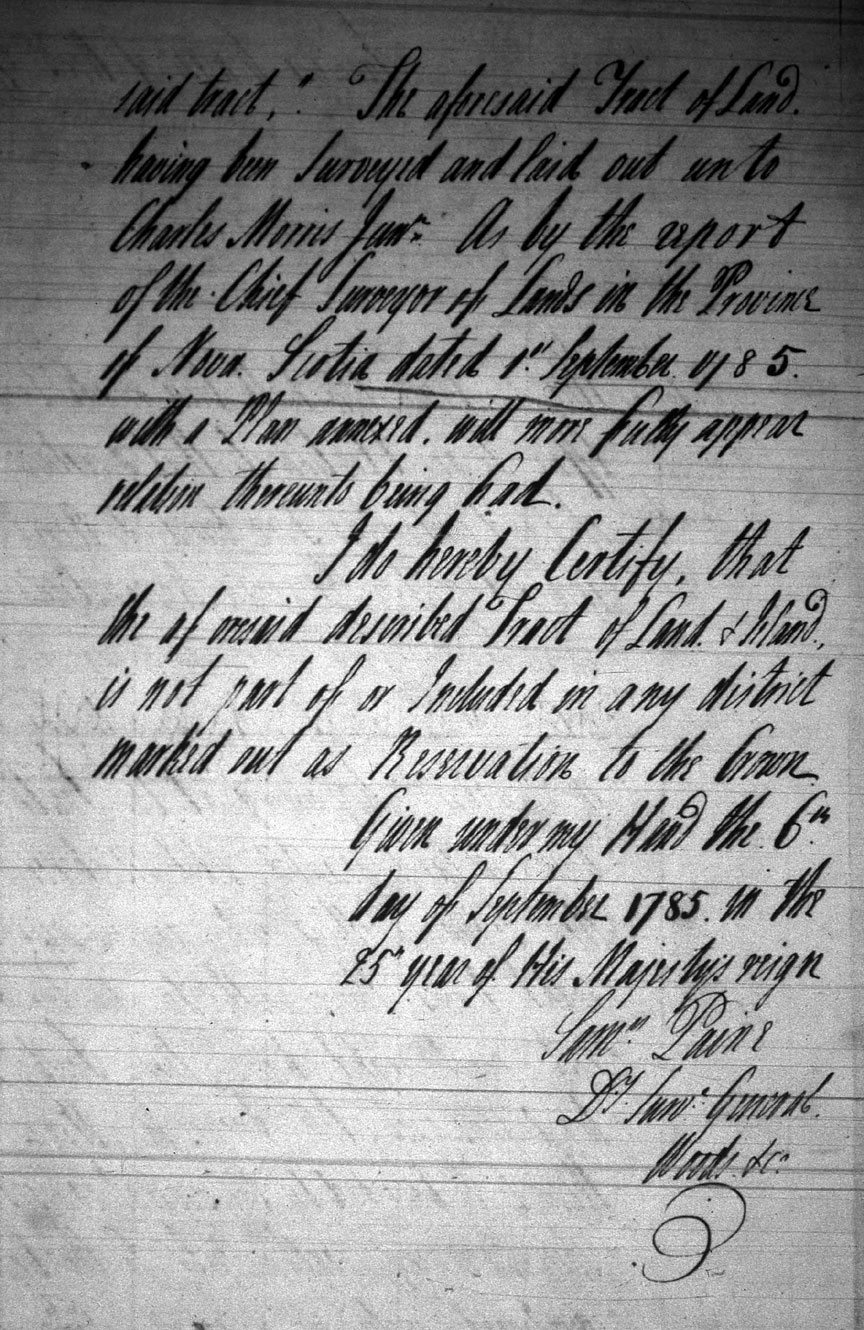 said tract," The aforesaid Tract of Land.
having been Surveyed and laid out unto
Charles Morris Junr. As by the report
of the Chief Surveyor of Lands in the Province
of Nova Scotia dated 1st September 1785.
with a Plan annexed, will more fully appear
relation thereunto being had.
I do hereby Certify, that
the aforesaid described Tract of Land & Island,
is not part of or Included in any district
marked out as Reservation to the Crown
Given under my Hand the 6th
day of September 1785. in the
25th year of His Majestys reign
Paine
Dy. Survr. General.
Woods &ca